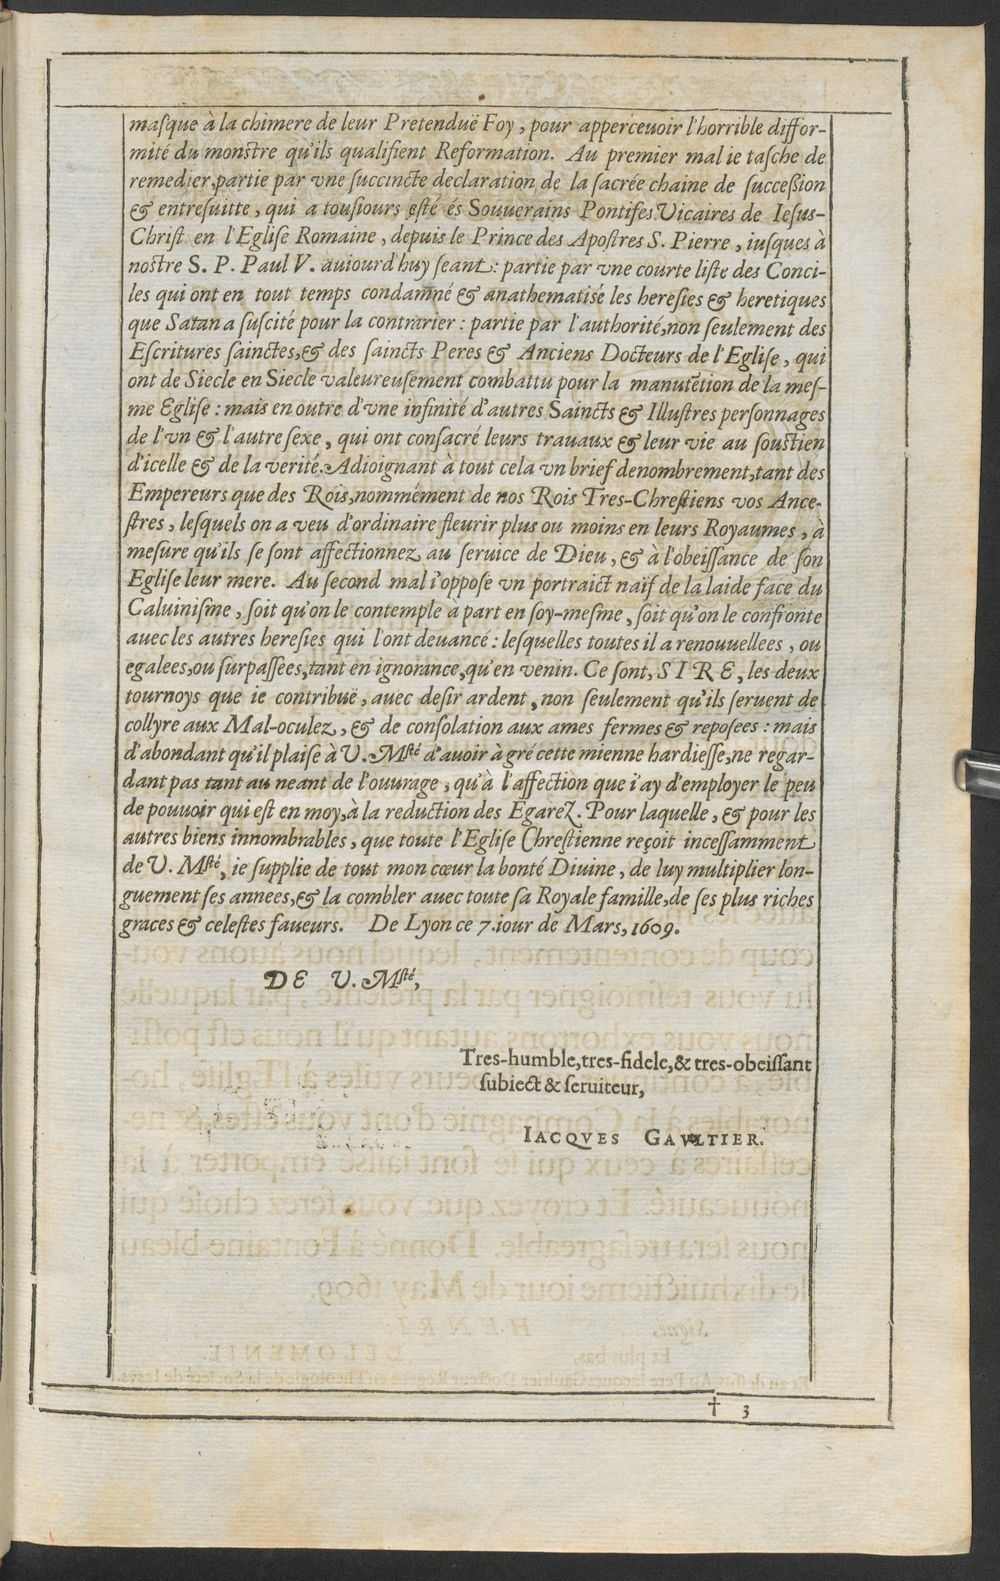 maſque à la chimere de leur Pretenduë Foy, pour apperceuoir l'horrible diffor-
mité du monstre qu'ils qualifient Reformation. Au premier mal ie taſche de
remedier, partie par vne ſuccincte declaration de la ſacrée chaine de ſucceßion
& entreſuitte, qui a touſiours esté és Souuerains Pontifes Vicaires de Ieſus-
Chriſt en l'Egliſe Romaine, depuis le Prince des Apoſtres S. Pierre, iuſques à
noſtre S. P. Paul V. auiourd'huy ſeant: partie par vne courte liſte des Conci-
les qui ont en tout temps condamné & anathematisé les hereſies & heretiques
que Satan a ſuſcité pour la contrarier: partie par l'authorité, non ſeulement des
Eſcritures ſainctes, & des ſaincts Peres & Anciens Docteurs de l'Egliſe, qui
ont de Siecle en Siecle valeureuſement combattu pour la manutẽtion de la meſ-
me Egliſe: mais en outre d'vne infinité d'autres Saincts & Illuſtres perſonnages
de l'vn & l'autre ſexe, qui ont conſacré leurs trauaux & leur vie au ſouſtien
d'icelle & de la verité. Adioignant à tout cela vn brief denombrement, tant des
Empereurs que des Rois, nommément de nos Rois Tres-Chreſtiens vos Ance-
ſtres, leſquels on a veu d'ordinaire fleurir plus ou moins en leurs Royaumes, à
meſure qu'ils ſe ſont affectionnez au ſeruice de Dieu, & à l'obeiſſance de ſon
Egliſe leur mere. Au ſecond mal i'oppoſe vn portraict naïf de la laide face du
Caluiniſme, ſoit qu'on le contemple à part en ſoy-meſme, ſoit qu'on le confronte
auec les autres hereſies qui l'ont deuancé: leſquelles toutes il a renouuellees, ou
egalees, ou ſurpaſſees, tant en ignorance, qu'en venin. Ce ſont, SIRE, les deux
tournoys que ie contribuë, auec deſir ardent, non ſeulement qu'ils ſeruent de
collyre aux Mal-oculez, & de conſolation aux ames fermes & repoſees: mais
d'abondant qu'il plaiſe à V. Mſté d'auoir à gré cette mienne hardieſſe, ne regar-
dant pas tant au neant de l'ouurage, qu'à l'affection que i'ay d'employer le peu
de pouuoir qui eſt en moy, à la reduction des Egarez. Pour laquelle, & pour les
autres biens innombrables, que toute l'Egliſe Chreſtienne reçoit inceſſamment
de V. Mſté, ie ſupplie de tout mon cœur la bonté Diuine, de luy multiplier lon-
guement ſes annees, & la combler auec toute ſa Royale famille, de ſes plus riches
graces & celeſtes faueurs. De Lyon ce 7. iour de Mars, 1609.
DE V. Mſté,
Tres-humble, tres-fidele, & tres-obeiſſant
ſubiect & ſeruiteur,
IACQVES GAVLTIER.
† 3